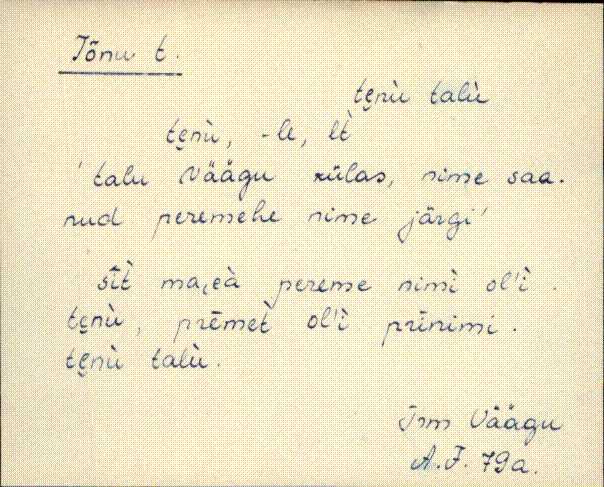 Tõnu t.
te̮nù talù
te̮nù, -le, lt̀
'talu Väägu külas, nime saa-
nud peremehe nime järgi'
sīt̀ ma,eà pereme nimì ol'ì.
te̮nù, prēmet̀ ol'ì prīnimi.
te̮nù talù.
Irm Väägu
A.F. 79a.